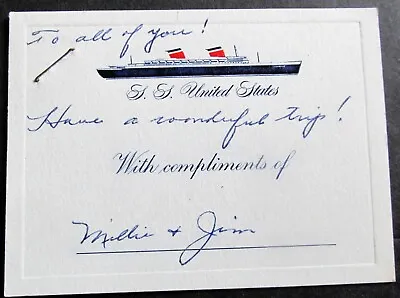 To all of you!
S. S. United States
Have a wonderful trip!
With compliments of
Millie + Jim